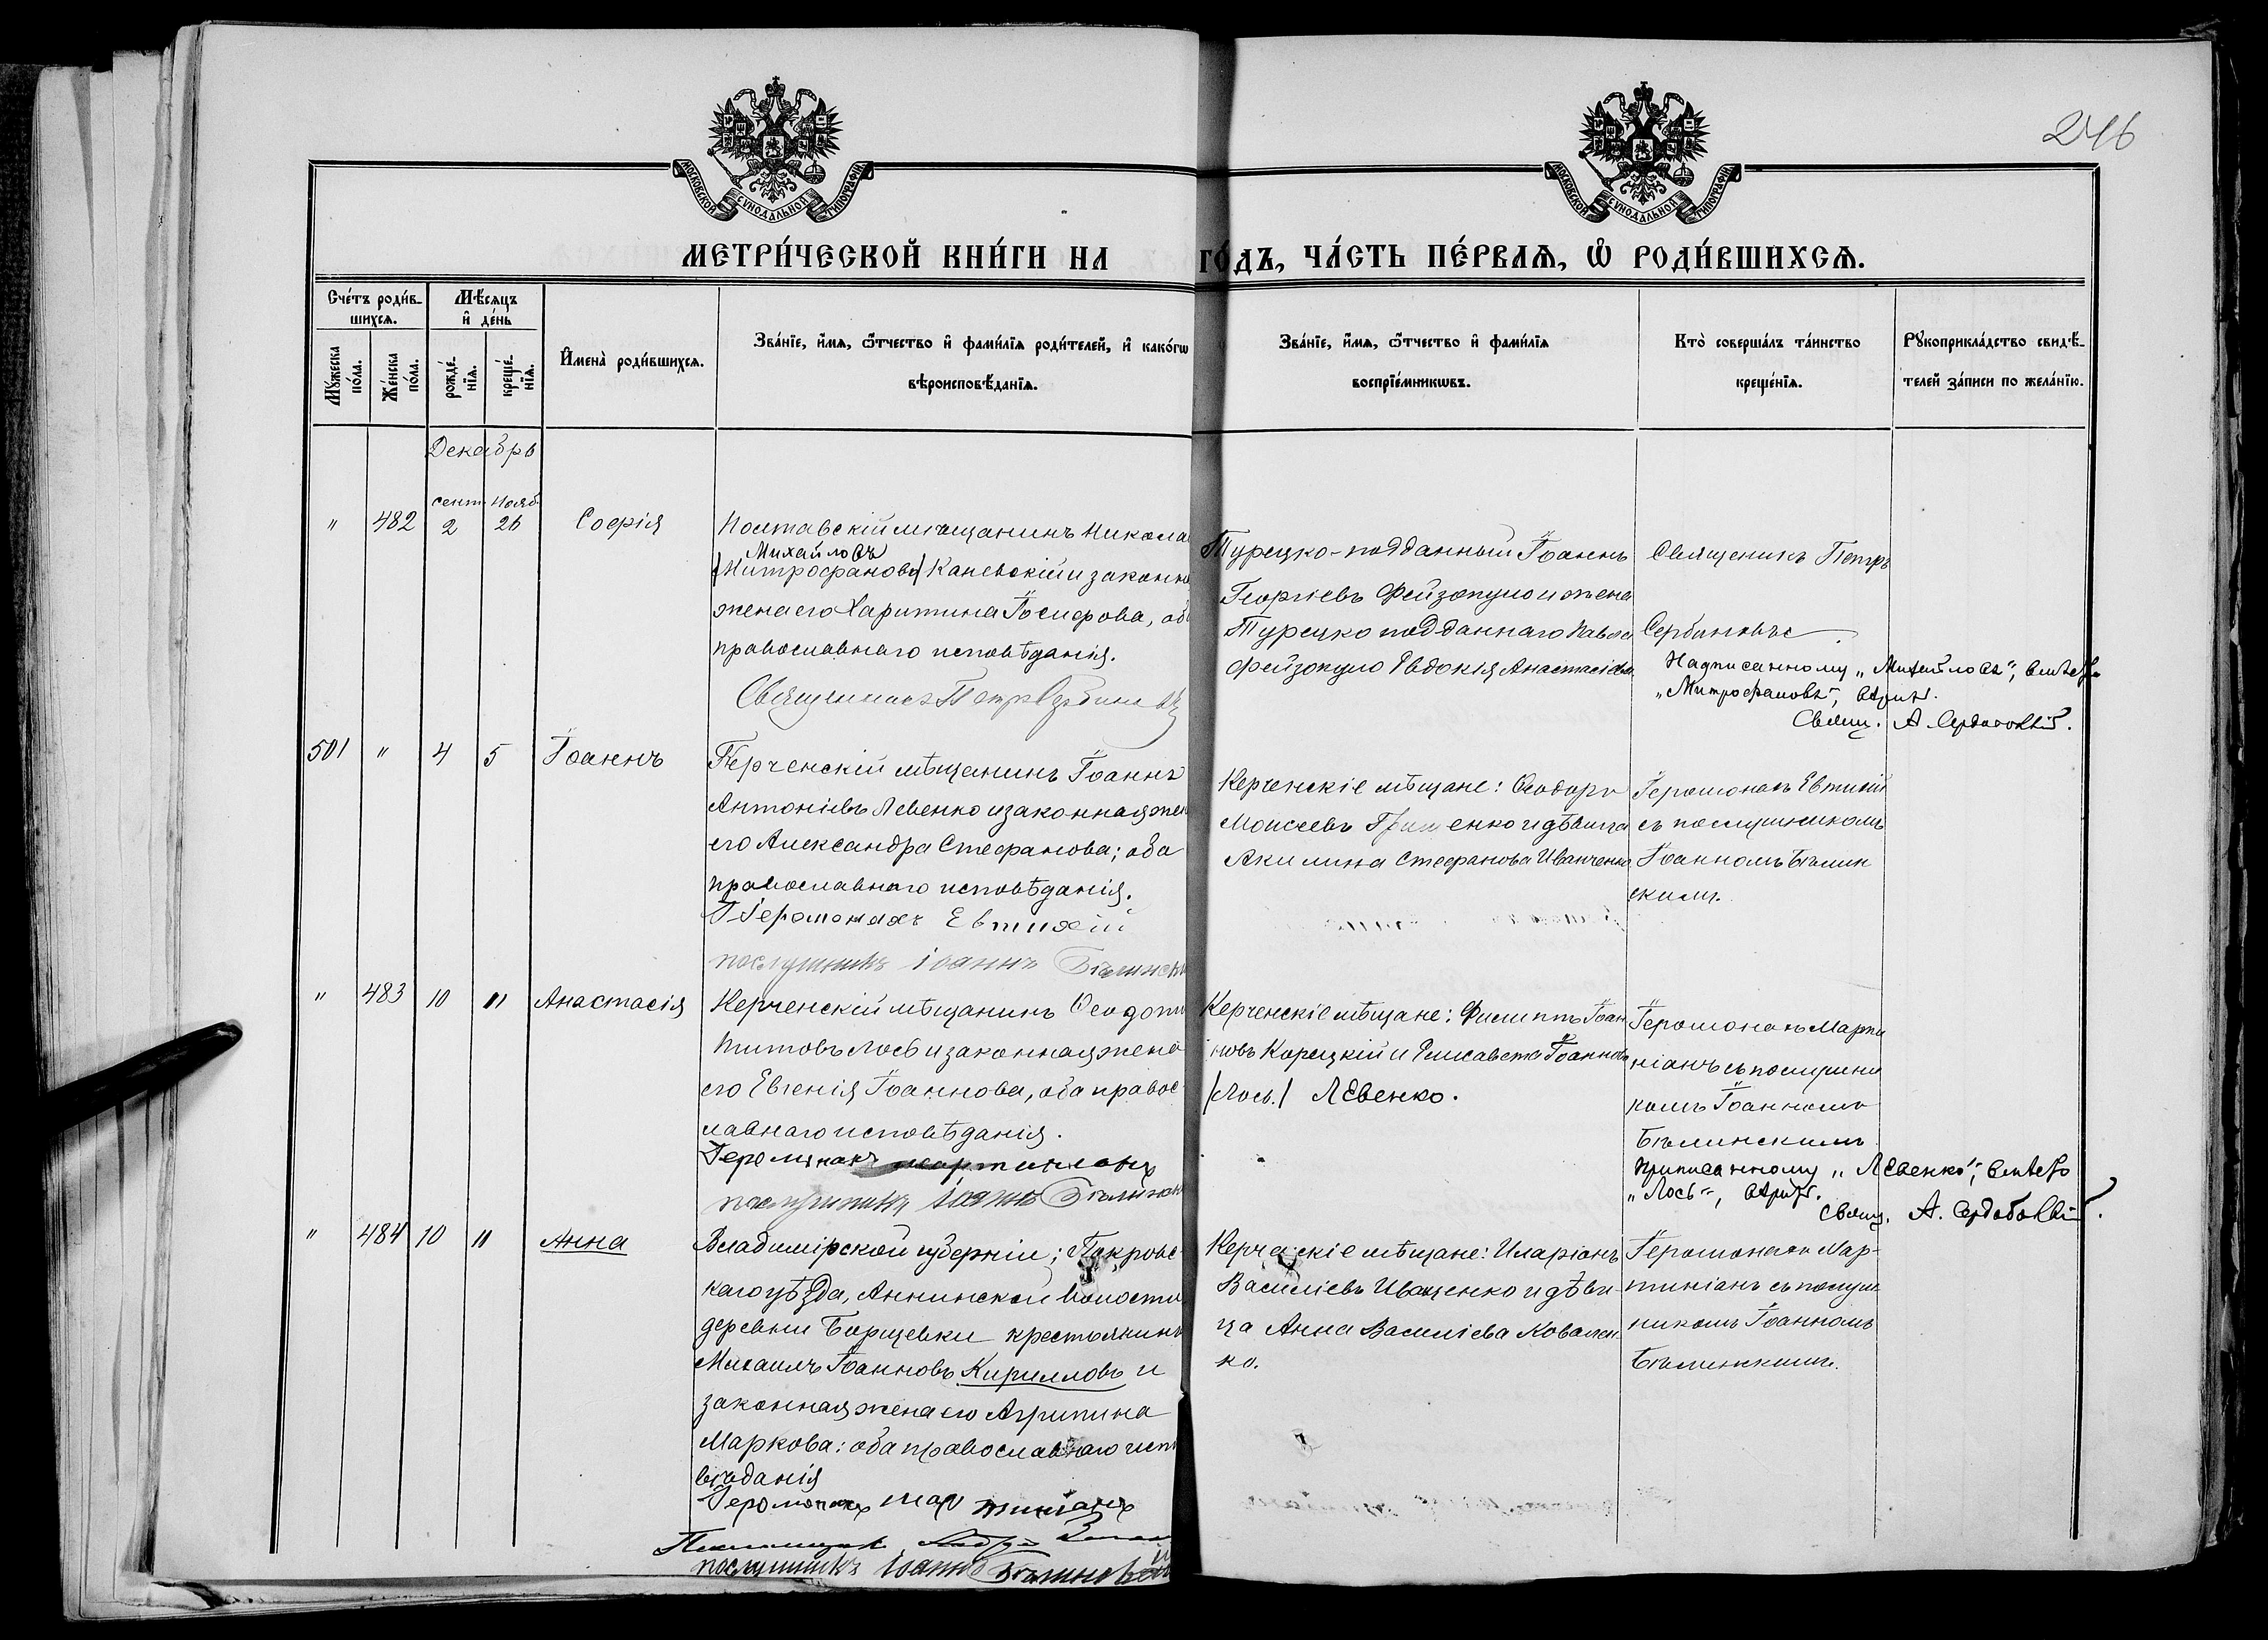 246
МОСКОВСКОЙ СѴНОДАЛЬНОЙ ТИПОГРАФІИ
МОСКОВСКОЙ СѴНОДАЛЬНОЙ ТИПОГРАФІИ
МЕТРИ́ЧЕСКОЙ КНИ́ГИ НА ГО́ДЪ, ЧА́СТЬ ПЕ́РВАѦ, Ѡ҆ РОДИ́ВШИХСѦ.
Счéтъ роди́в-
шихсѧ.
Мѣ́сѧцъ
и҆ дéнь
Мꙋ́жеска
по́ла.
Же́нска
по́ла.
рожде́-
нїѧ.
креще́-
нїѧ.
И҆мена̀ роди́вшихсѧ.
Зва́нїе, и҆́мѧ, ѻ҆́тчество и҆ фами́лїѧ роди́телей, и҆ како́гѡ
вѣроисповѣ́данїѧ.
Зва́нїе, и҆́мѧ, ѻ҆́тчество и҆ фами́лїѧ
воспрїе́мникѡвъ.
Кто̀ соверша́лъ та́инство
креще́нїѧ.
Рꙋкоприкла́дство свидѣ́-
телей за́писи по жела́нїю.
Декабрь
сент. нояб.
" 482 2 26 Софія
Полтавскій мѣщанинъ Никола
Михайловъ
(Митрофановъ) Каневскій и законна
жена его Харитина Іосифова, об
православнаго исповѣданія.
Священникъ Петръ
Турецко-подданный Іоаннъ
Георгіевъ Фейзопуло и жена
Турецко подданнаго Павла
Фейзопуло Евдокія Анастасіева
Священикъ Петръ
Сербиновъ
Надписанному „Михайловъ", вмѣсто
„Митрофановъ", вѣрить.
Свящ. А.
501 " 4 5 Іоаннъ
Керченскій мѣщанинъ Іоаннъ
Антоніевъ Левенко и законная жен
его Александра Стефанова; оба
православнаго исповѣданія.
Іеромонахъ Евтихій
послушникъ Іоаннъ Бѣлинск
Керченскіе мѣщане: Ѳеодоръ
Моисеевъ Грищенко и дѣвица
Акилина Стефанова Иванченко
Іеромонахъ Евтихій
съ послушникомъ
Іоанномъ Бѣлин
скимъ.
" 483 10 11 Анастасія
Керченскій мѣщанинъ Ѳеодот
Титовъ Лось и законная жена
его Евгенія Іоаннова, оба правос
лавнаго исповѣданія.
Іеромонахъ Мартиніанъ
послушникъ Іоаннъ Бѣлинск
Керченскіе мѣщане: Филиппъ Іоан
новъ Корецкій и Елисавета Іоаннова
(Лось.) Левенко.
Іеромонахъ Марти
ніанъ съ послушни
комъ Іоанномъ
Бѣлинскимъ
Приписанному „Левенко", вмѣсто
„Лось", вѣрить.
Свящ. А.
" 484 10 11 Анна
Владимірской губерніи; Покровс-
каго уѣзда, Аннинской волости
деревни Борщевки крестьянинъ
Михаилъ Іоанновъ Кирилловъ и
законная жена его Агрипина
Маркова: оба православнаго исп
вѣданія
Іеромонахъ Мартиніанъ
послушникъ Іоаннъ Бѣлинскій
Керченскіе мѣщане: Иларіонъ
Василіевъ Иващенко и дѣви-
ца Анна Василіева Ковален-
ко.
Іеромонахъ Мар-
тиніанъ съ послуш-
никомъ Іоанномъ
Бѣлинскимъ.